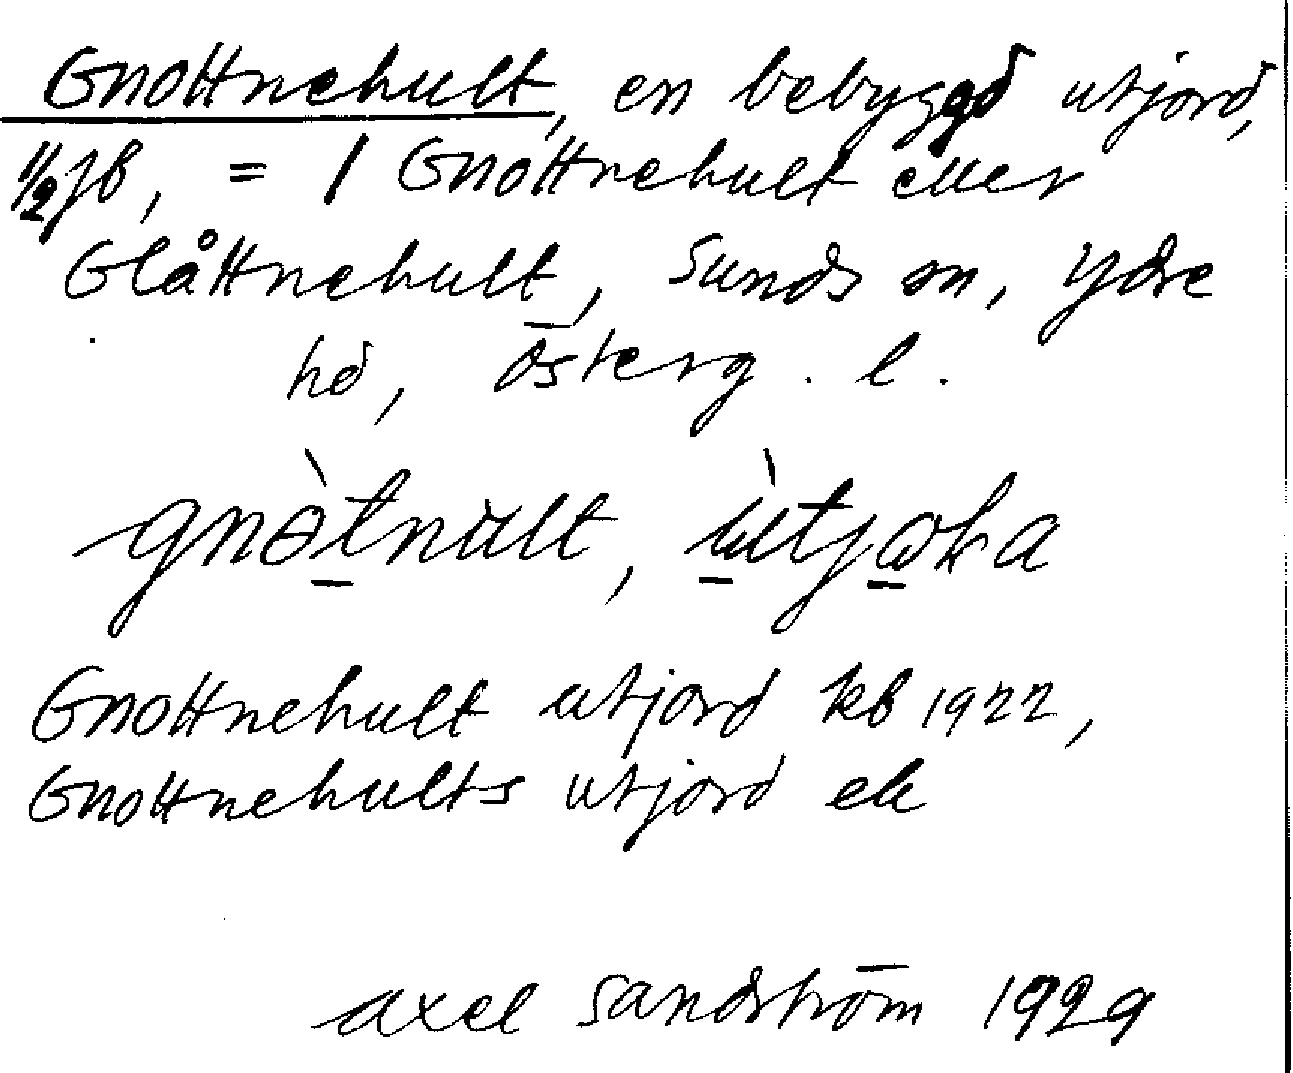 Gnottnehult, en bebyggd utjord,
1/2 jb, = 1 Gnottnehult eller
Glåttnehult, Sunds sn, Ydre
hd, Österg. l.
Gnottnehult utjord kb 1922,
Gnottnehults utjord ek
Axel Sandström 1929